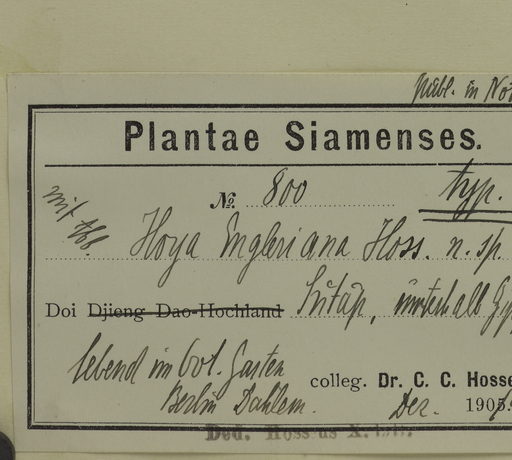 Publ. in Not
Plantae Siamenses.
№ 800 typ.
mit Abb.
Hoya Engleriana Hoss. n. sp.
Doi Djieng Dao-Hochland Sutap, unterhalb
lebend im bot. Garten
Berlin Dahlem.
colleg. Dr. C. C. Hosse
Dez. 1905.
Ded. Hosseus X.